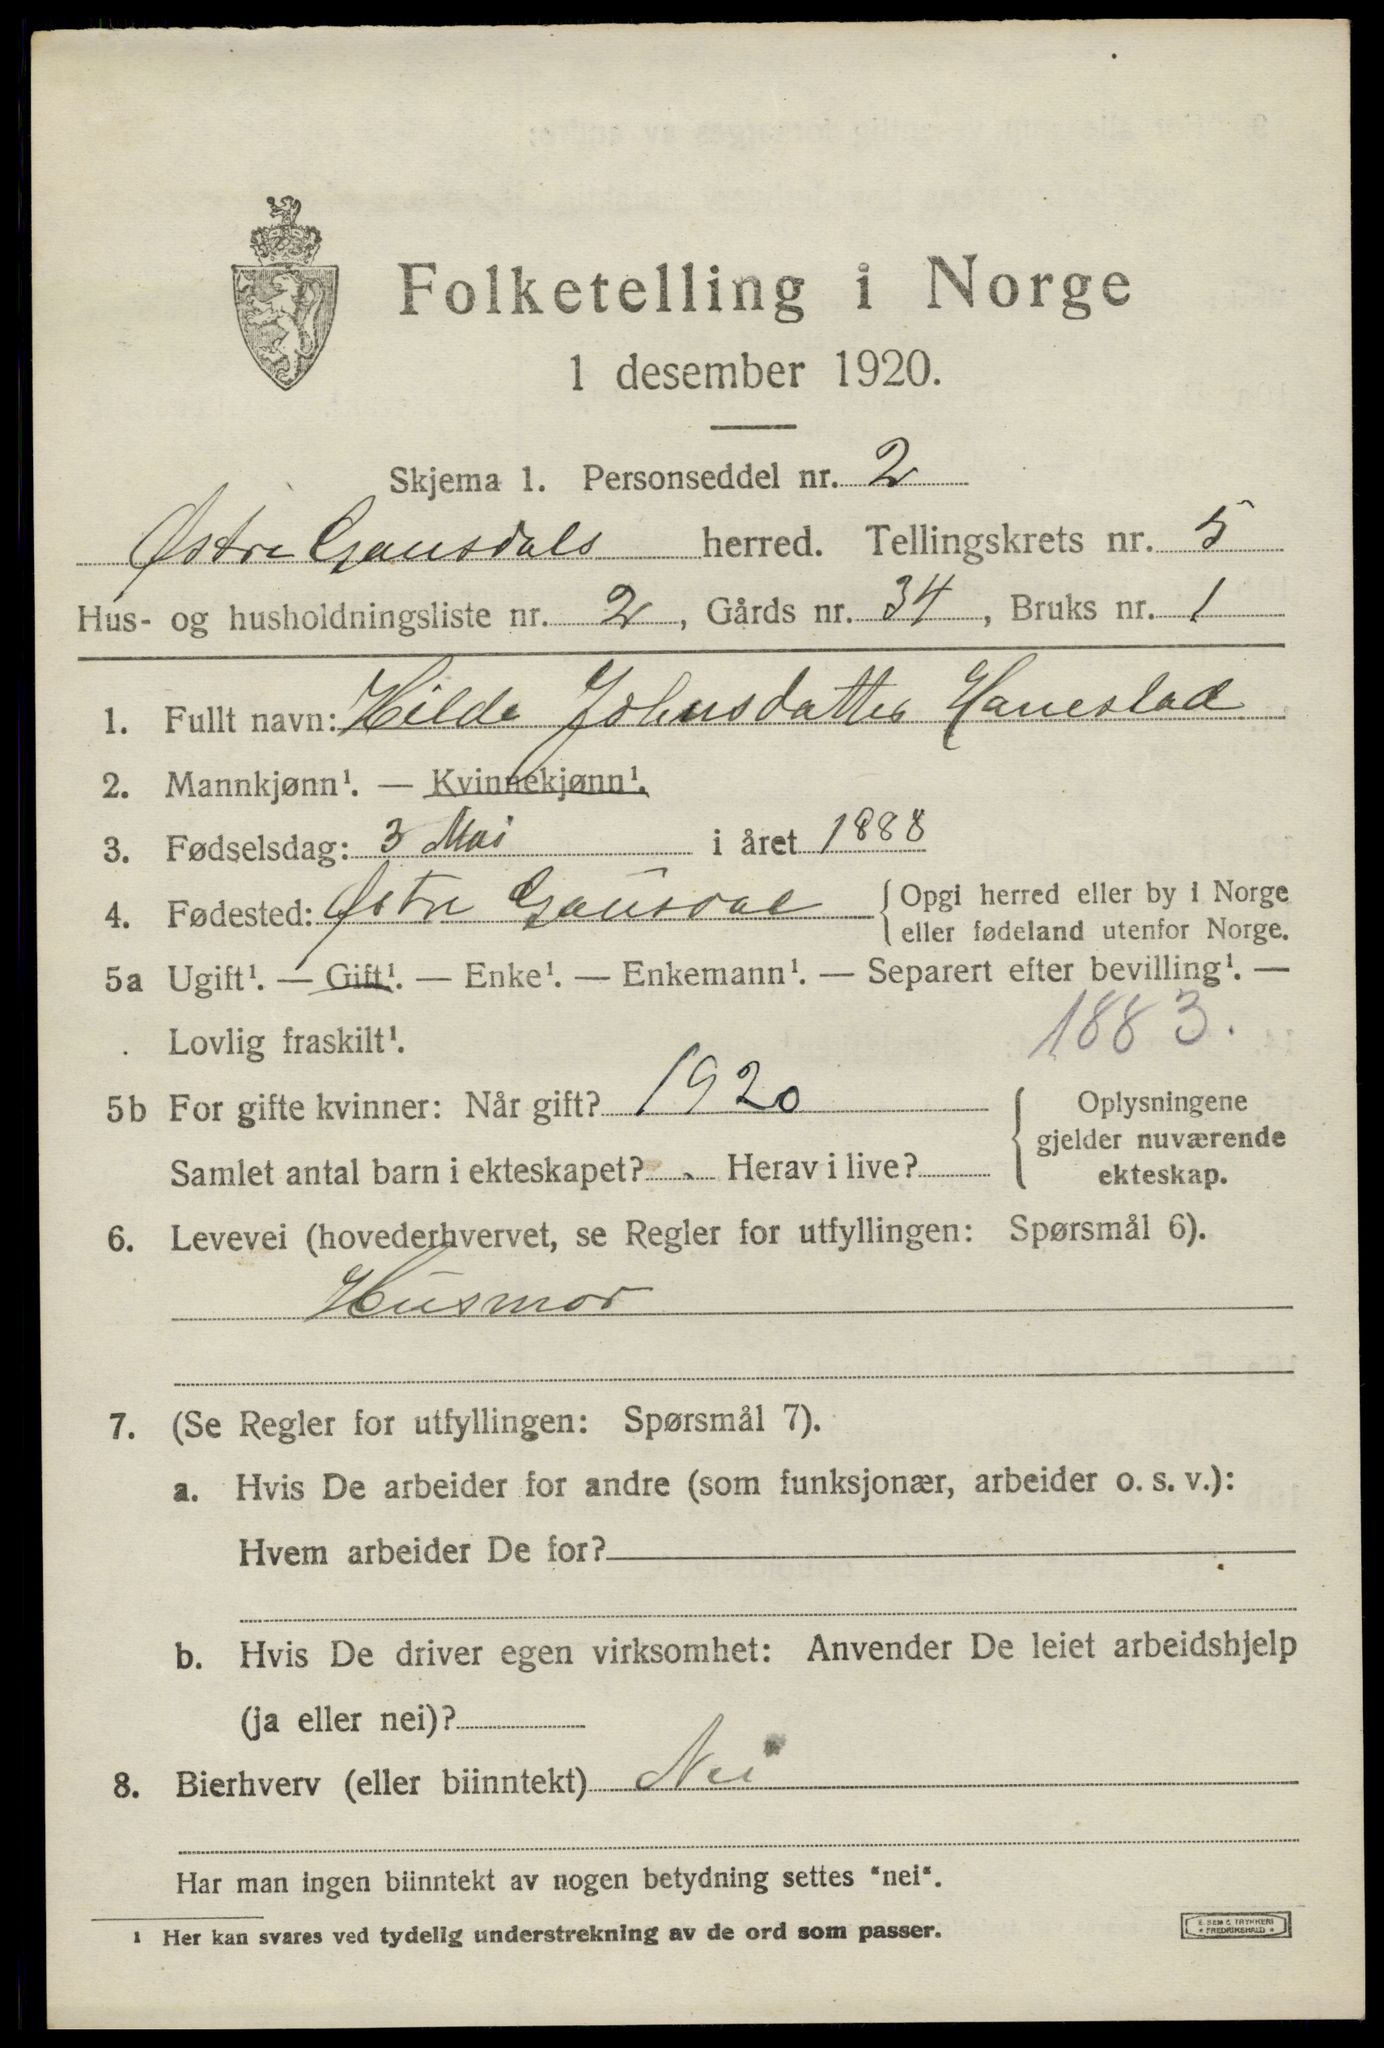 Folketelling i Norge
1 desember 1920.
Skjema 1. Personseddel nr. 2
Østre Gausdals herred. Tellingskrets nr. 5
Hus- og husholdningsliste nr. 2, Gårds nr. 34, Bruks nr. 1
1. Fullt navn: Hilda Johnsdatter Hanestad
2. Mannkjønn¹. — Kvinnekjønn¹.
3. Fødselsdag: 3 Mai i året 1888
4. Fødested: Østre Gausdal { Opgi herred eller by i Norge
eller fødeland utenfor Norge.
5a Ugift¹. — Gift¹. — Enke¹. — Enkemann¹. — Separert efter bevilling¹. —
Lovlig fraskilt¹. 1883.
5b For gifte kvinner: Når gift? 1920
Samlet antal barn i ekteskapet? Herav i live?
{ Oplysningene
gjelder nuværende
ekteskap.
6. Levevei (hovederhvervet, se Regler for utfyllingen: Spørsmål 6).
Husmor
7. (Se Regler for utfyllingen: Spørsmål 7).
a. Hvis De arbeider for andre (som funksjonær, arbeider o. s. v.):
Hvem arbeider De for?
b. Hvis De driver egen virksomhet: Anvender De leiet arbeidshjelp
(ja eller nei)?
8. Bierhverv (eller biinntekt) Nei
Har man ingen biinntekt av nogen betydning settes "nei".
¹ Her kan svares ved tydelig understrekning av de ord som passer.
E. SEM'S TRYKKERI
* FREDRIKSHALD *